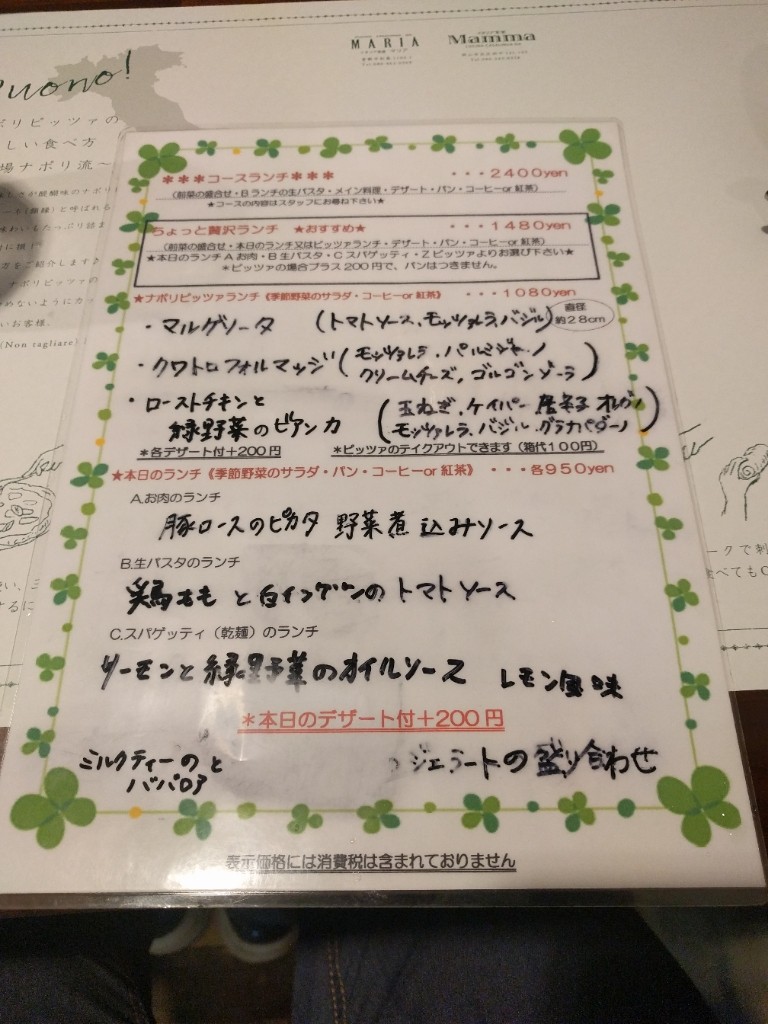 MARIA
Mamma
uono!
ポリピッツァの
しい食べ方
場ナポリ流～
(Non tagliare)
＊＊＊コースランチ＊＊＊ ・・・2400yen
(前菜の盛合せ・Bランチの生パスタ・メイン料理・デザート・パン・コーヒーor 紅茶)
★コースの内容はスタッフにお尋ね下さい★
ちょっと贅沢ランチ ★おすすめ★ ・・・1480yen
(前菜の盛合せ・本日のランチ又はピッツァランチ・デザート・パン・コーヒーor 紅茶)
★本日のランチ A お肉・B 生パスタ・C スパゲッティ・Z ピッツァよりお選び下さい★
＊ピッツァの場合プラス200円で、パンはつきません。
★ナポリピッツァランチ《季節野菜のサラダ・コーヒーor 紅茶》 ・・・1080yen
・マルゲリータ (トマトソース、モッツァレラ、バジル) 直径約28cm
・クワトロフォルマッジ (モッツァレラ、パルミジャーノ
クリームチーズ、ゴルゴンゾーラ)
・ローストチキンと
緑野菜のビアンカ
(玉ねぎ、ケイパー、唐辛子、オレガノ
モッツァレラ、バジル、グラナパダーノ)
＊各デザート付+200円 ＊ピッツァのテイクアウトできます(箱代100円)
★本日のランチ《季節野菜のサラダ・パン・コーヒーor 紅茶》 ・・・各950yen
A.お肉のランチ
豚ロースのピカタ 野菜煮込みソース
B.生パスタのランチ
鶏ももと白インゲンのトマトソース
C.スパゲッティ（乾麺）のランチ
サーモンと緑野菜のオイルソース レモン風味
＊本日のデザート付+200円
ミルクティーのと
ババロア
ジェラートの盛り合わせ
表示価格には消費税は含まれておりません